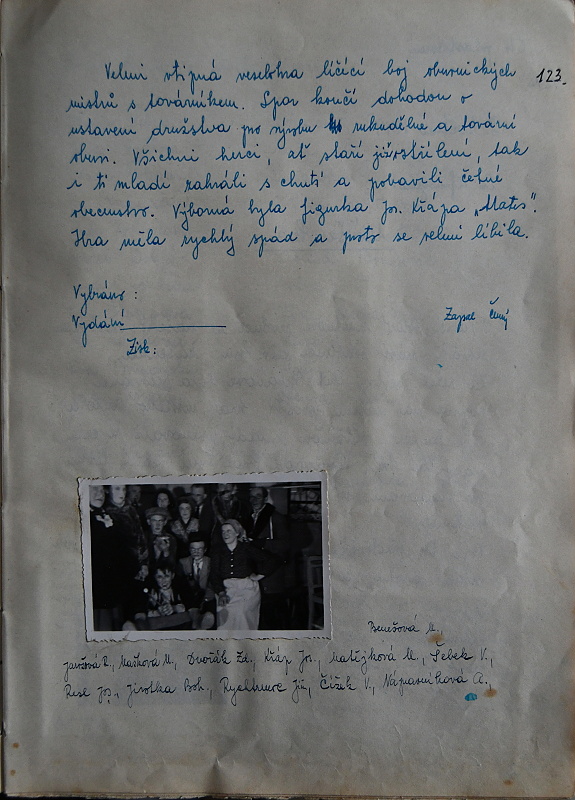 123.
Velmi vtipná veselohra líčící boj obuvnických
mistrů s továrníkem. Spor končí dohodou o
ustavení družstva pro výrobu rukodělné a tovární
obuvi. Všichni herci, ať staří již ostřílení, tak
i ti mladí zahráli s chutí a pobavili četné
obecenstvo. Výborná byla figurka Jos. Křápa „Mates".
Hra měla rychlý spád a proto se velmi líbila.
Vybráno :
Vydání
Zapsal Černý
Zisk:
Benešová M.,
Janšová R., Mašková M., Dvořák Zd., Křáp Jos., Matějková M., Šebek V.,
Resl Jos., Jirotka Boh., Rychnovc Jiř., Čížek V., Náprastková A.,